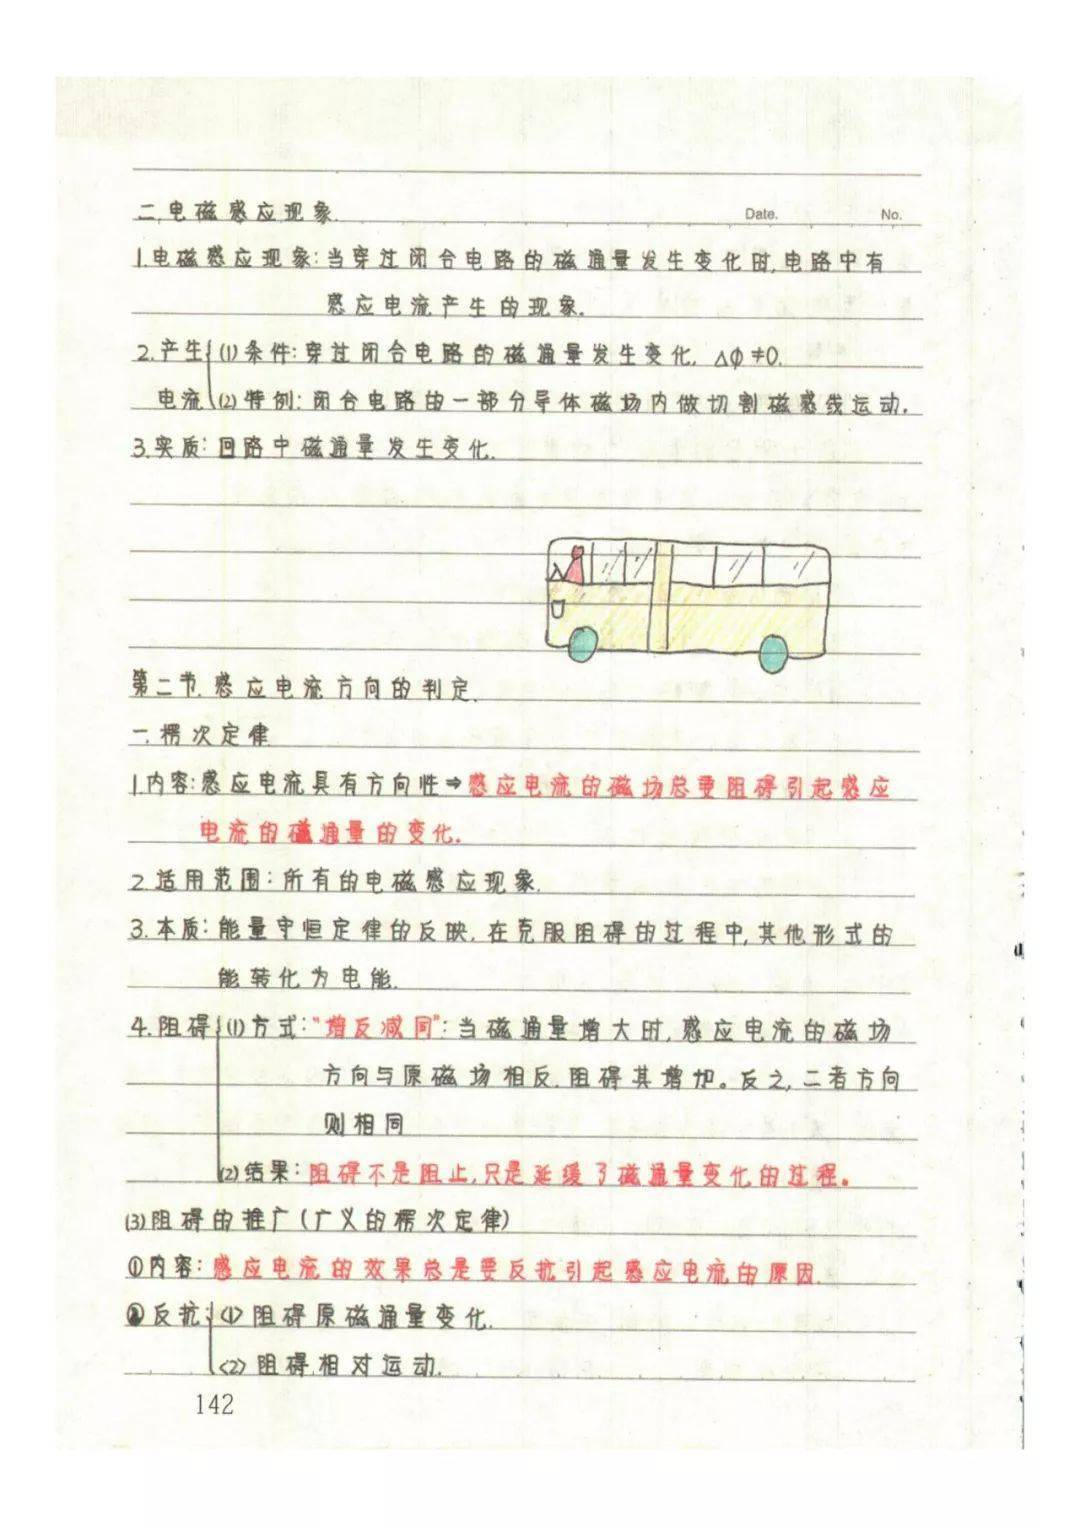 二.电磁感应现象.
Date. No.
1.电磁感应现象:当穿过闭合电路的磁通量发生变化时,电路中有
感应电流产生的现象.
2.产生 (1)条件:穿过闭合电路的磁通量发生变化, △Φ≠0.
电流 (2)特例:闭合电路的一部分导体磁场内做切割磁感线运动.
3.实质:回路中磁通量发生变化.
第二节.感应电流方向的判定.
一.楞次定律
1.内容:感应电流具有方向性⇒感应电流的磁场总要阻碍引起感应
电流的磁通量的变化.
2.适用范围:所有的电磁感应现象.
3.本质:能量守恒定律的反映,在克服阻碍的过程中,其他形式的
能转化为电能.
4.阻碍 (1)方式:"增反减同":当磁通量增大时,感应电流的磁场
方向与原磁场相反.阻碍其增加。反之,二者方向
则相同
(2)结果:阻碍不是阻止,只是延缓了磁通量变化的过程。
(3)阻碍的推广(广义的楞次定律)
①内容:感应电流的效果总是要反抗引起感应电流的原因.
②反抗:<1>阻碍原磁通量变化.
<2>阻碍相对运动.
142